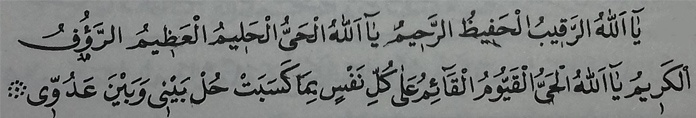 يَآ اَللّٰهُ الرَّقِيبُ الْحَفِيظُ الرَّحِيمُ يَآ اَللّٰهُ الْحَىُّ الْحَلِيمُ الْعَظِيمُ الرَّؤُفُ
اَلْكَرِيمُ يَآ اَللّٰهُ الْحَىُّ الْقَيُّومُ الْقَآئِمُ عَلٰى كُلِّ نَفْسٍ بِمَا كَسَبَتْ حُلْ بَيْنِى وَبَيْنَ عَدُوِّى